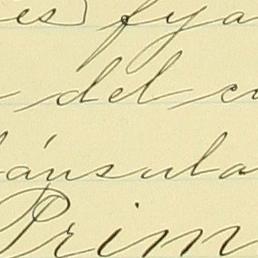 es) fya
del cu
ánsula
Prim